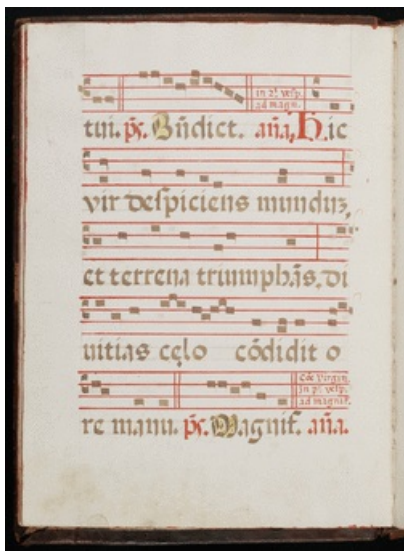 in 2ᵃ vesp.
ad magn.
tui. ps. Bñdict. aña. Hic
vir despiciens mundũ,
et terrena triumphãs, di
uitias cęlo cõdidit o
Cõe virgin.
in pᵃ vesp.
ad magnif.
re manu. ps. Magnif. aña.